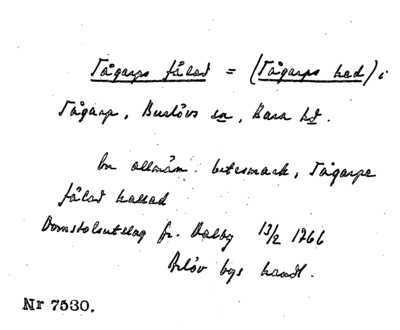 Tågarps fålad = (Tågarps hed) i
Tågarp, Burlövs sn, Bara hd.
En allmän betesmark, Tågarps
fålad kallad
Domstolsutslag fr. Dalby 13/2 1766
Arlöv bys handl.
Nr 7530.